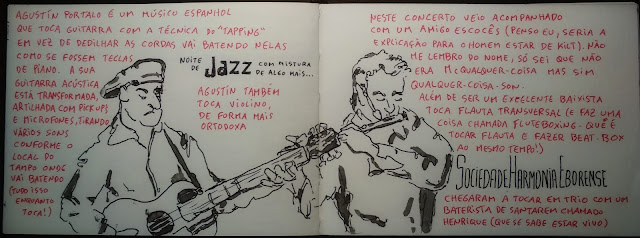 AGUSTÍN PORTALO É UM MÚSICO ESPANHOL
QUE TOCA GUITARRA COM A TÉCNICA DO "TAPPING"
EM VEZ DE DEDILHAR AS CORDAS VAI BATENDO NELAS
COMO SE FOSSEM TECLAS
DE PIANO. A SUA
GUITARRA ACÚSTICA
ESTÁ TRANSFORMADA,
ARTILHADA COM PICKUPS
E MICROFONES, TIRANDO
VÁRIOS SONS
CONFORME O
LOCAL DO
TAMPO ONDE
VAI BATENDO
(TUDO ISSO
ENQUANTO
TOCA!)
NOITE DE JAZZ COM MISTURA DE ALGO MAIS...
AGUSTÍN TAMBÉM
TOCA VIOLINO,
DE FORMA MAIS
ORTODOXA
NESTE CONCERTO VEIO ACOMPANHADO
COM UM AMIGO ESCOCÊS (PENSO EU, SERIA A
EXPLICAÇÃO PARA O HOMEM ESTAR DE KILT). NÃO
ME LEMBRO DO NOME, SÓ SEI QUE NÃO
ERA MCQUALQUER-COISA MAS SIM
QUALQUER-COISA-SON.
ALÉM DE SER UM EXCELENTE BAIXISTA
TOCA FLAUTA TRANSVERSAL (E FAZ UMA
COISA CHAMADA FLUTEBOXING. QUE É
TOCAR FLAUTA E FAZER BEAT-BOX
AO MESMO TEMPO!)
SOCIEDADE HARMONIA EBORENSE
CHEGARAM A TOCAR EM TRIO COM UM
BATERISTA DE SANTARÉM CHAMADO
HENRIQUE (QUE SE SABE ESTAR VIVO)